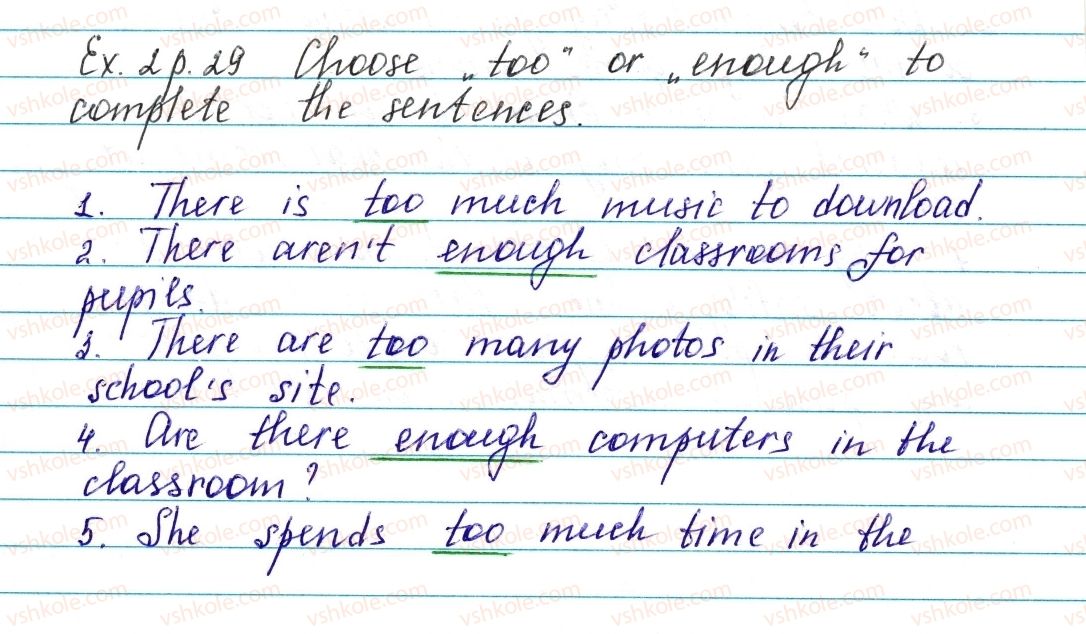 Ex. 2 p. 29 Choose „too“ or „enough“ to
complete the sentences.
1. There is too much music to download.
2. There aren't enough classrooms for
pupils.
3. There are too many photos in their
school's site.
4. Are there enough computers in the
classroom?
5. She spends too much time in the
vshkole.com